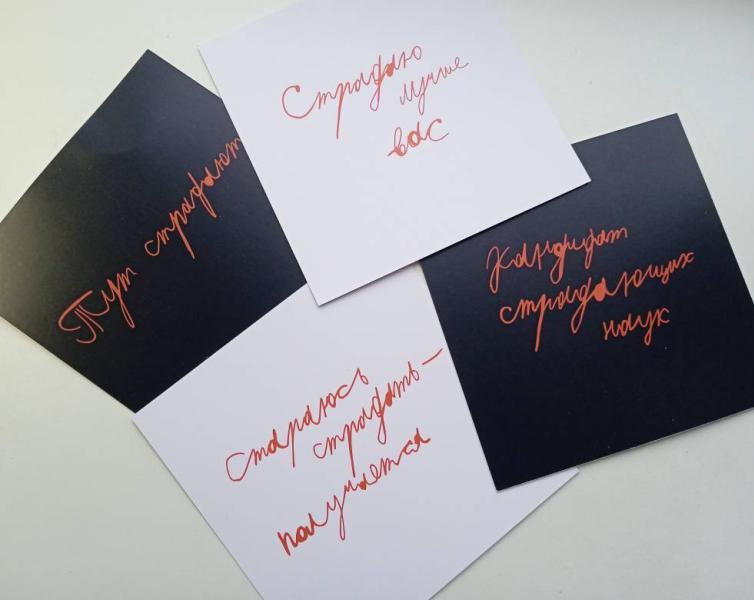 Страдаю
лучше
вас
Тут страдают
Кандидат
страдающих
наук
стараюсь
страдать—
получается